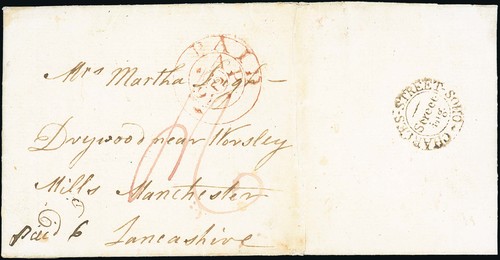 PAID
Mrs Martha
Drywood near Worsley
Mills Manchester
Paid 6
Lancashire
CHARLES-STREET-SOHO